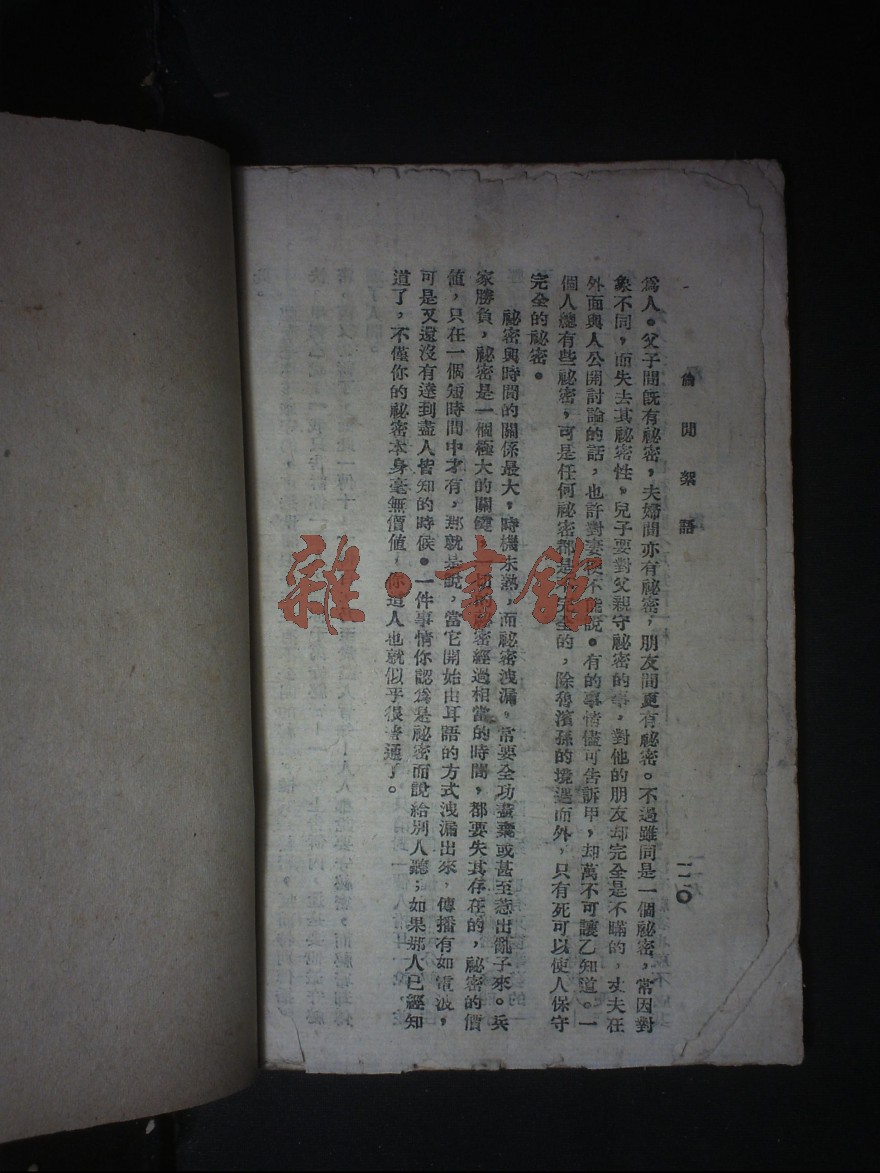 偷閒絮語
一二〇
爲人。父子間旣有祕密，夫婦間亦有祕密，朋友間更有祕密。不過雖同是一個祕密，常因對
象不同，而失去其祕密性。兒子要對父親守祕密的事，對他的朋友却完全是不瞞的，丈夫在
外面與人公開討論的話，也許對妻不能說。有的事情儘可告訴甲，却萬不可讓乙知道。一
個人總有些祕密，可是任何祕密都是不全的，除魯濱孫的境遇而外，只有死可以使人保守
完全的祕密。
祕密與時間的關係最大，時機未熟，而祕密洩漏。常要全功盡棄或甚至惹出亂子來。兵
家勝負，祕密是一個極大的關鍵，祕密經過相當的時間，都要失其存在的，祕密的價
値，只在一個短時間中才有，那就是說，當它開始由耳語的方式洩漏出來，傳播有如電波，
可是又還沒有達到盡人皆知的時候。一件事情你認爲是祕密而說給別人聽；如果那人已經知
道了，不僅你的祕密本身毫無價値，你這人也就似乎很普通了。
雜·書館